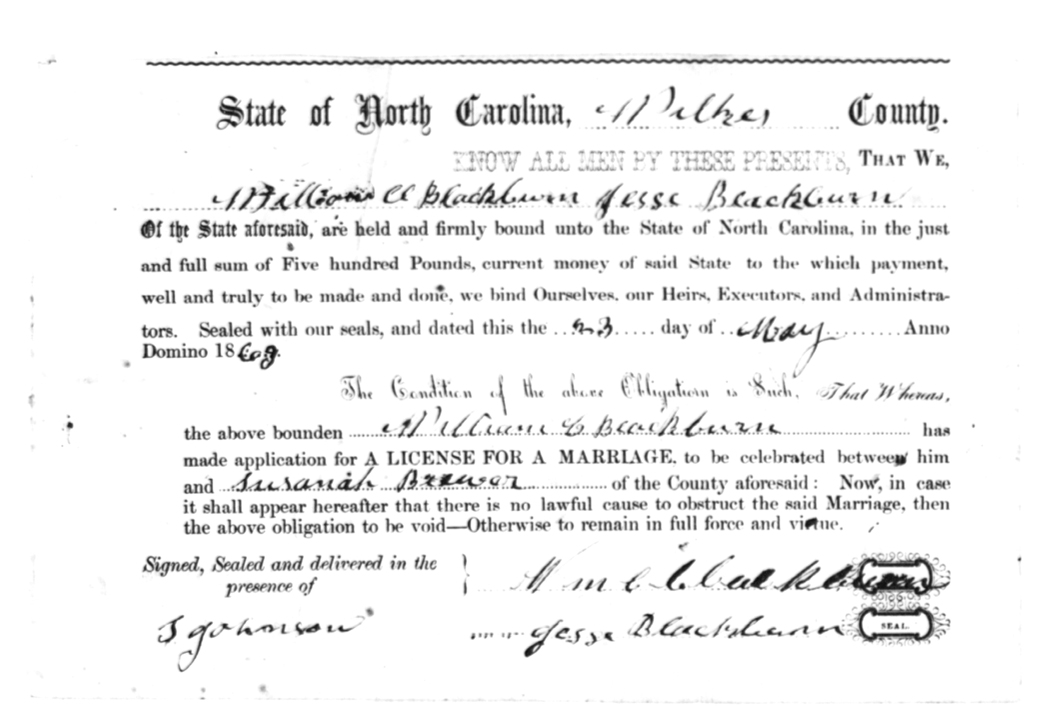 State of North Carolina, Wilkes County.
KNOW ALL MEN BY THESE PRESENTS, THAT WE,
William C Blackburn Jesse Blackburn
Of the State aforesaid, are held and firmly bound unto the State of North Carolina, in the just
and full sum of Five hundred Pounds, current money of said State to the which payment,
well and truly to be made and done, we bind Ourselves, our Heirs, Executors, and Administra-
tors. Sealed with our seals, and dated this the 23 day of May Anno
Domino 18
The Condition of the above Obligation is Such, That Whereas,
the above bounden William C Blackburn has
made application for A LICENSE FOR A MARRIAGE, to be celebrated between him
and Susanah Brewer of the County aforesaid: Now, in case
it shall appear hereafter that there is no lawful cause to obstruct the said Marriage, then
the above obligation to be void—Otherwise to remain in full force and virtue.
Signed, Sealed and delivered in the
presence of
Wm C Blackburn
J Johnson
Jesse Blackburn SEAL.